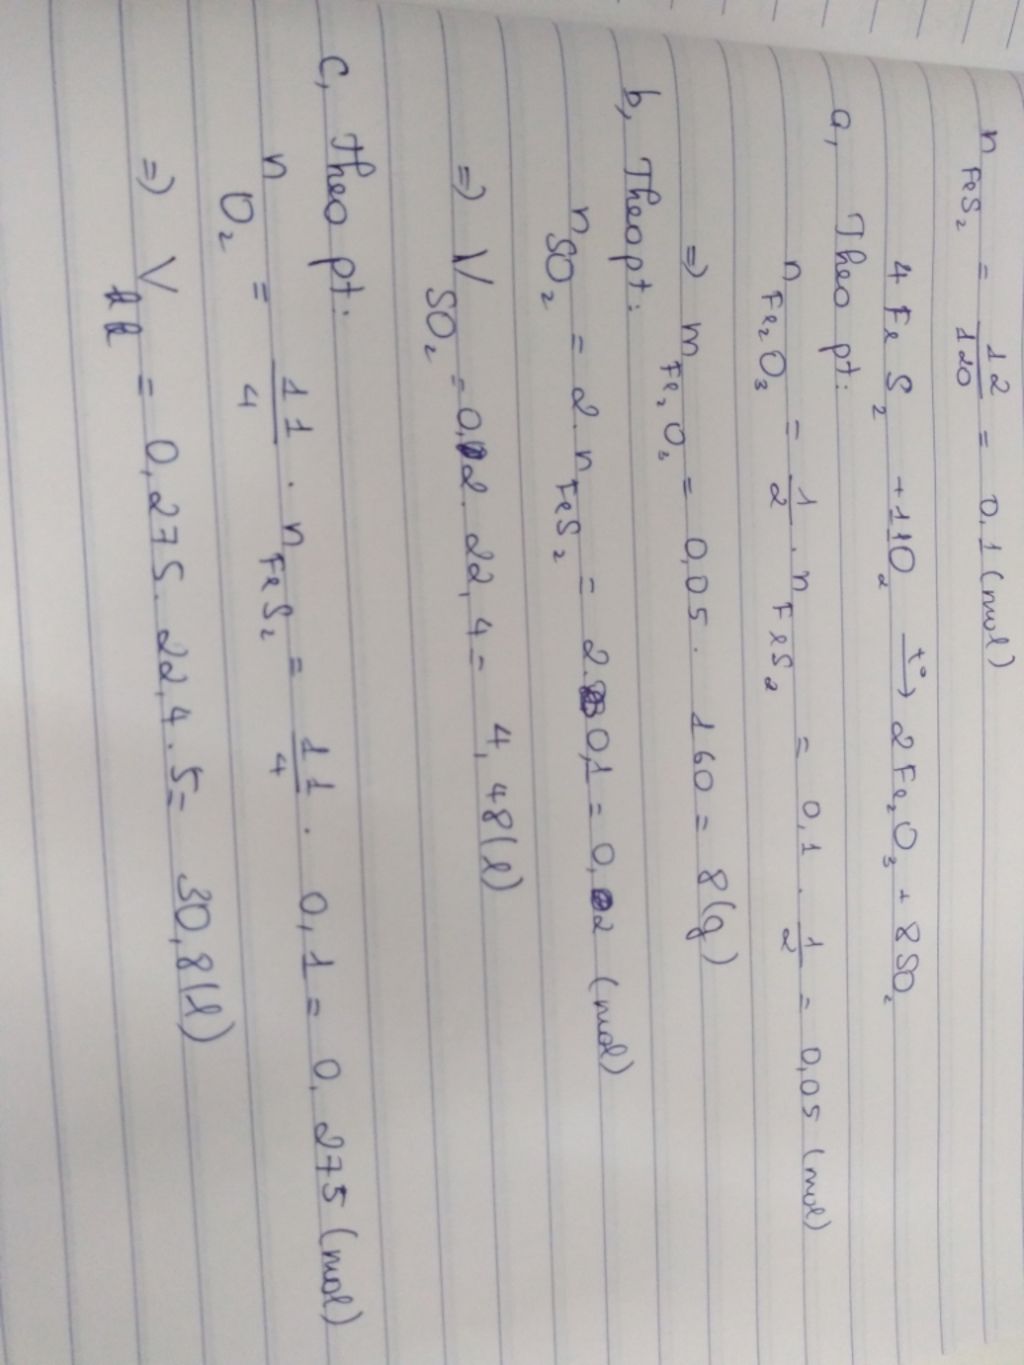 n FeS₂ = 12/120 = 0,1 (mol)
4 FeS₂ + 11O₂ t°→ 2Fe₂O₃ + 8SO₂
a, Theo pt:
n Fe₂O₃ = 1/2 . n FeS₂ = 0,1 . 1/2 = 0,05 (mol)
=> m Fe₂O₃ = 0,05 . 160 = 8 (g)
b, Theo pt:
n SO₂ = 2 . n FeS₂ = 2. 0,1 = 0,2 (mol)
=> V SO₂ = 0,2. 22,4 = 4,48 (l)
c, Theo pt:
n O₂ = 11/4 . n FeS₂ = 11/4 . 0,1 = 0,275 (mol)
=> V = 0,275. 22,4 . 5 = 30,8 (l)